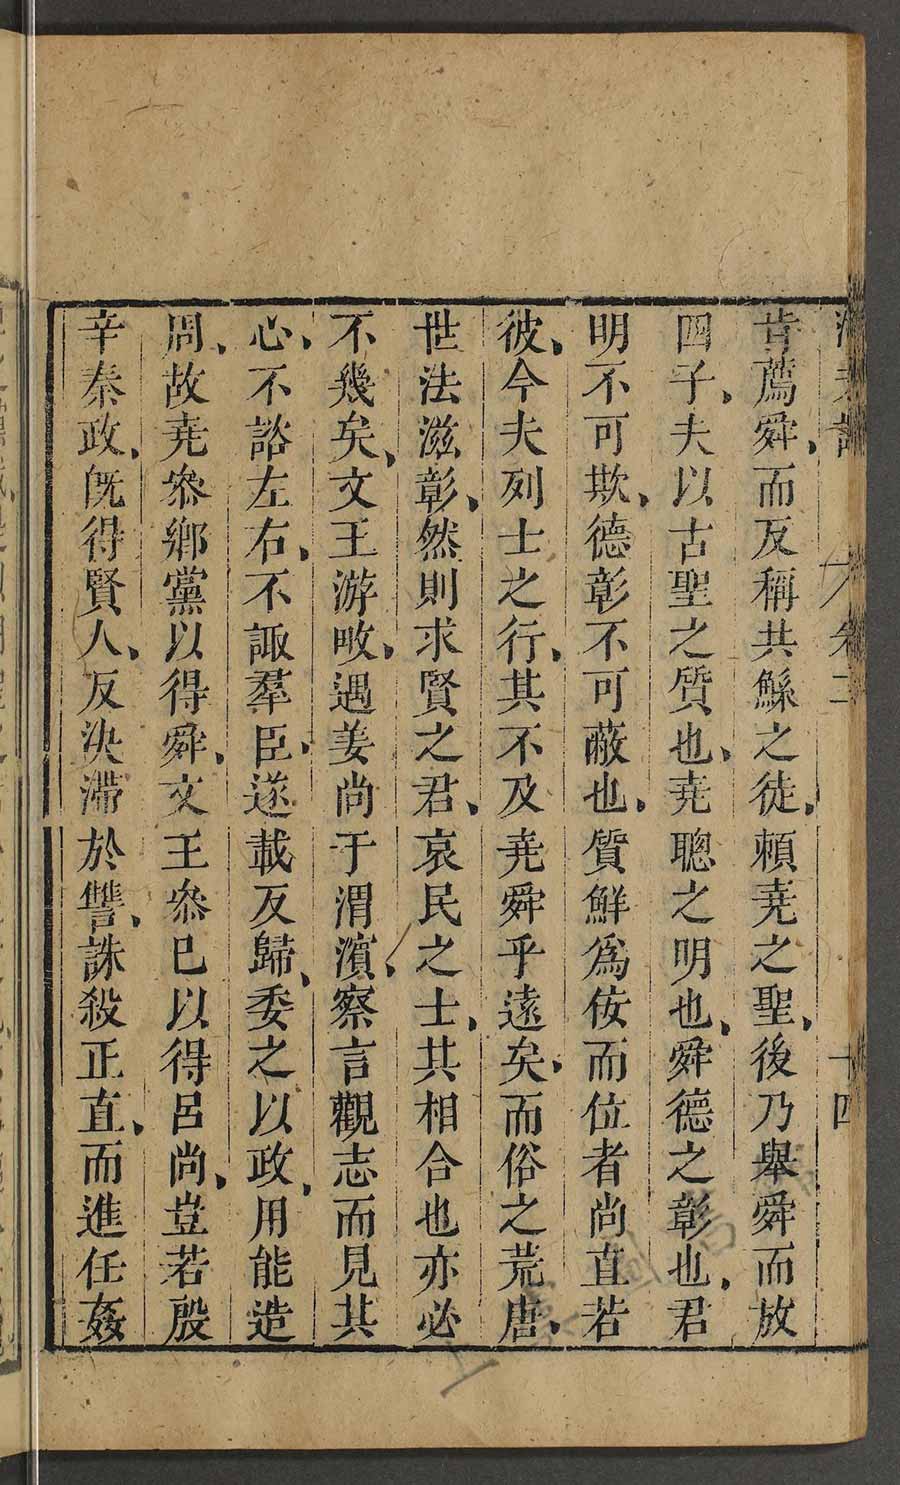 潛夫論 卷二 十四
肯薦舜、而反稱共鯀之徒、頼尭之聖、後乃舉舜而放
四子、夫以古聖之質也、尭聰之明也、舜德之彰也、君
明不可欺、德彰不可蔽也、質鮮爲佞而位者尚直若
彼、今夫列士之行、其不及尭舜乎遠矣、而俗之荒唐、
世法滋彰、然則求賢之君、哀民之士、其相合也亦必
不幾矣、文王游畋、遇姜尚于渭濱、察言觀志而見其
心、不諮左右、不諏羣臣、遂載反歸、委之以政、用能造
周、故尭叅鄉黨以得舜、文王叅巳以得呂尚、豈若殷
辛秦政、旣得賢人、反决滯於讐、誅殺正直、而進任姦